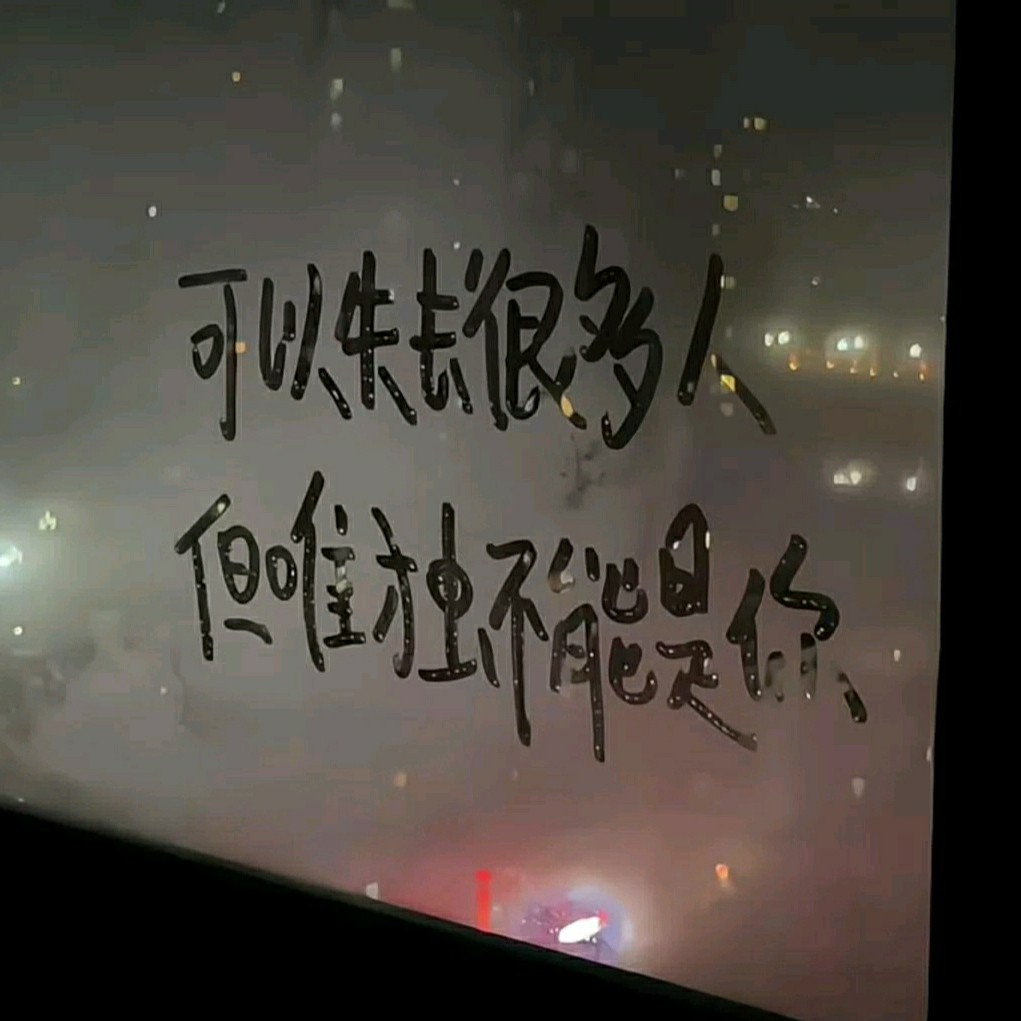 可以失去很多人
但唯独不能是你